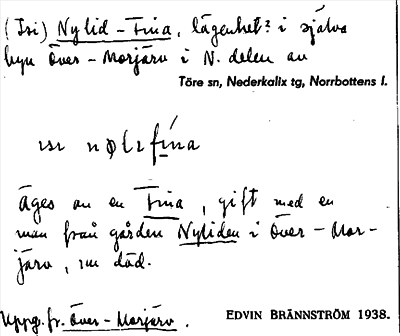 (Isi) Nylid-Fina, lägenhet? i själva
byn Över-Morjärv i N. delen av
Töre sn, Nederkalix tg, Norrbottens l.
ɩsɩ nølɩfína
Äges av en Fina, gift med en
man från gården Nyliden i Över-Mor-
järv, nu död.
Uppg. fr. Över-Morjärv.
EDVIN BRÄNNSTRÖM 1938.